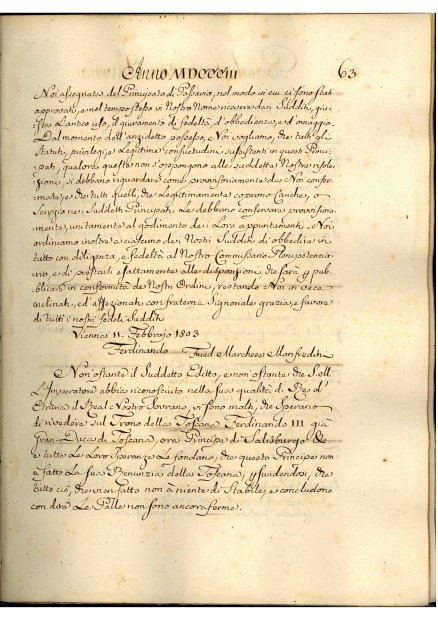 Anno MDCCCIII 63
Noi assegnata del Principato di Passavia, nel modo in cui ci sono stati
approvati, e nel tempo stesso in Nostro Nome ricevere da i Sudditi, giu-
sta l'antico uso, il giuramento di fedeltà, d'obbedienza, ed omaggio.
Dal momento dell'anzidetto possesso, Noi vogliamo, che tutti gli
Statuti, privilegj, e Legittime consuetudini sussistenti in questi Princi-
pati, qualora queste non s'oppongono alle suddette Nostre risolu-
zioni, si debbano riguardare come provvisoriamente da Noi confer-
mate, e che tutti quelli, che Legittimamente coprono Cariche, o
Servizio nei Suddetti Principati Le debbano conservare provvisoria-
mente, unitamente al godimento de i Loro appuntamenti. Noi
ordiniamo inoltre a ciascuno de i Nostri Sudditi di obbedire in
tutto con diligenza, e fedeltà al Nostro Commissario Plenipotenzia-
rio, e di prestarsi esattamente alle disposizioni, che farà
in conformità de Nostri Ordini, restando Noi in vece
inclinati, ed affezionati con fraterna Signorale grazia, a favore
di tutti i nostri fedeli Sudditi
Vienna 11. Febbrajo 1803
Ferdinando Marchese Manfredini
Non ostante il Suddetto Editto, e non ostante che
L'Imperatore abbia riconosciuto nella sua qualità di Re d'
Etruria il Real Nostro Sovrano, vi sono molti, che Sperano
di rivedere sul Trono della Toscana Ferdinando III già
Gran-Duca di Toscana, ora Principe di Salisburgo
e tutte Le Loro Speranze Le fondano, che questo Principe non
à fatto La sua Renunzia della Toscana, che
tutto ciò, che vien fatto non à niente di Stabile, e concludono
con dire Le Palle non sono ancora ferme.